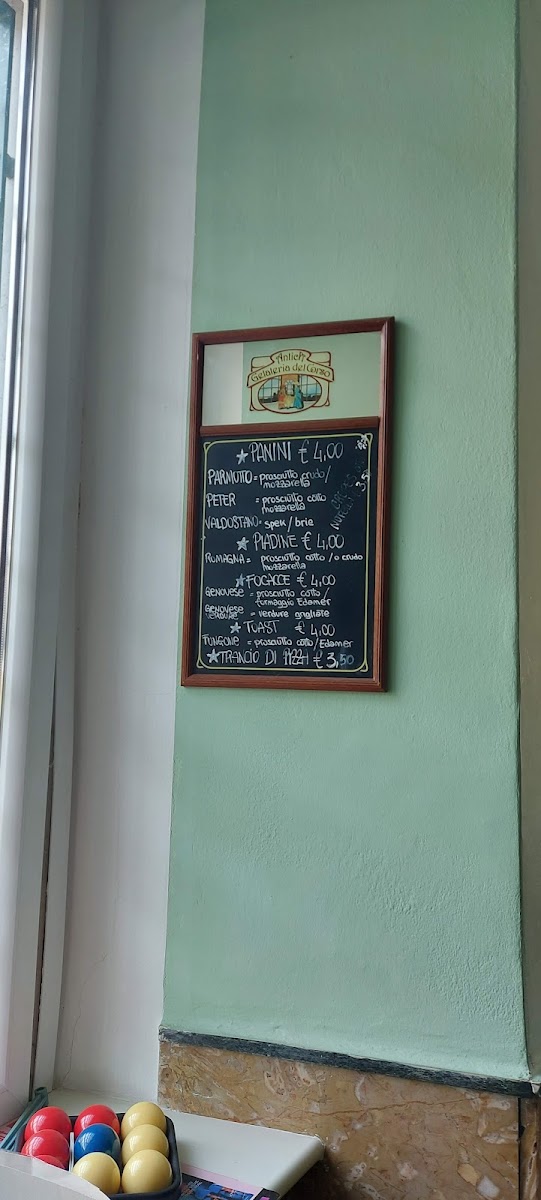 Antica
Gelateria del Corso
★ PANINI € 4,00
PARMOTTO = prosciutto crudo/
mozzarella
PETER = prosciutto cotto
mozzarella
VALDOSTANO = spek/brie
★ PIADINE € 4,00
ROMAGNA = prosciutto cotto/o crudo
mozzarella
★ FOCACCE € 4,00
GENOVESE = prosciutto cotto/
formaggio Edamer
GENOVESE
VERDURE = verdure grigliate
★ TOAST € 4,00
FUNGONE = prosciutto cotto/Edamer
★ TRANCIO DI PIZZA € 3,50
3,50